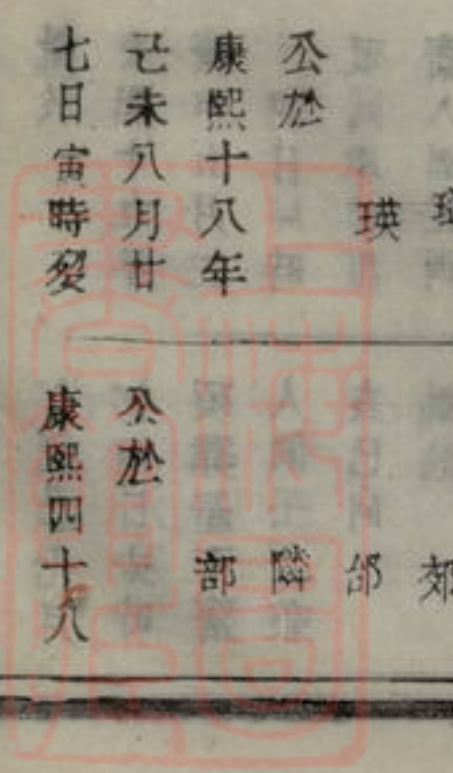 瑛
公於
康熙十八年
己未八月廿
七日寅時癹
郊
邰
隣
部
公於
康熙四十八